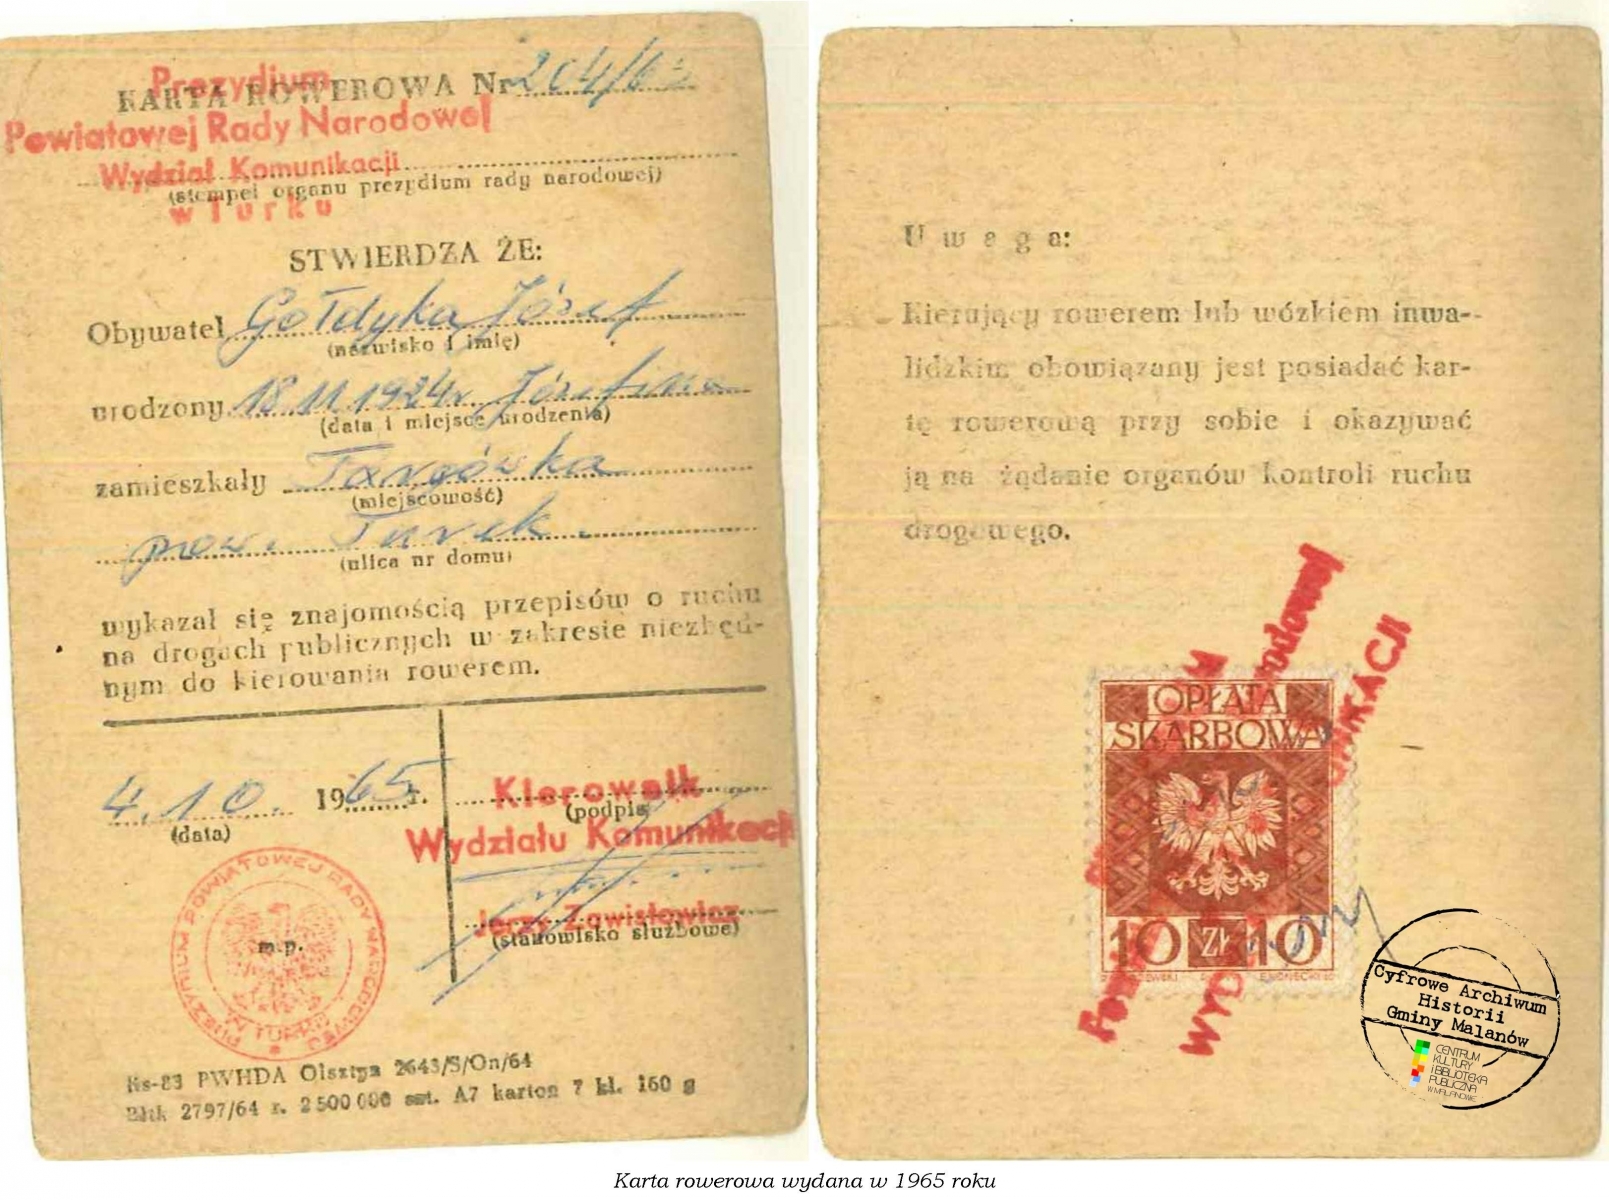 KARTA ROWEROWA Nr 204/65
Prezydium
Powiatowej Rady Narodowej
Wydział Komunikacji
(stempel organu prezydium rady narodowej)
w Turku
STWIERDZA ŻE:
Obywatel Gołdyka Józef
(nazwisko i imię)
urodzony 18 11 1924r Józefina
(data i miejsce urodzenia)
zamieszkały Targówka
(miejscowość)
pow. Turek.
(ulica nr domu)
wykazał się znajomością przepisów o ruchu
na drogach publicznych w zakresie niezbęd-
nym do kierowania rowerem.
4.10. 1965 r.
(data)
Kierownik
(podpis)
Wydziału Komunikacji
Jerzy Zawisłowicz
(stanowisko służbowe)
PREZYDIUM POWIATOWEJ RADY NARODOWEJ
W TURKU
m.p.
Ns-83 PWHDA Olsztyn 2643/S/On/64
2797/64 r. 2 500 000 szt. A7 karton 7 kl. 160 g
Uwaga:
Kierujący rowerem lub wózkiem inwa-
lidzkim obowiązany jest posiadać kar-
tę rowerową przy sobie i okazywać
ją na żądanie organów kontroli ruchu
drogowego.
OPŁATA
SKARBOWA
10 ZŁ 10
Cyfrowe Archiwum
Historii
Gminy Malanów
CENTRUM
KULTURY
I BIBLIOTEKA
PUBLICZNA
W MALANOWIE
Karta rowerowa wydana w 1965 roku